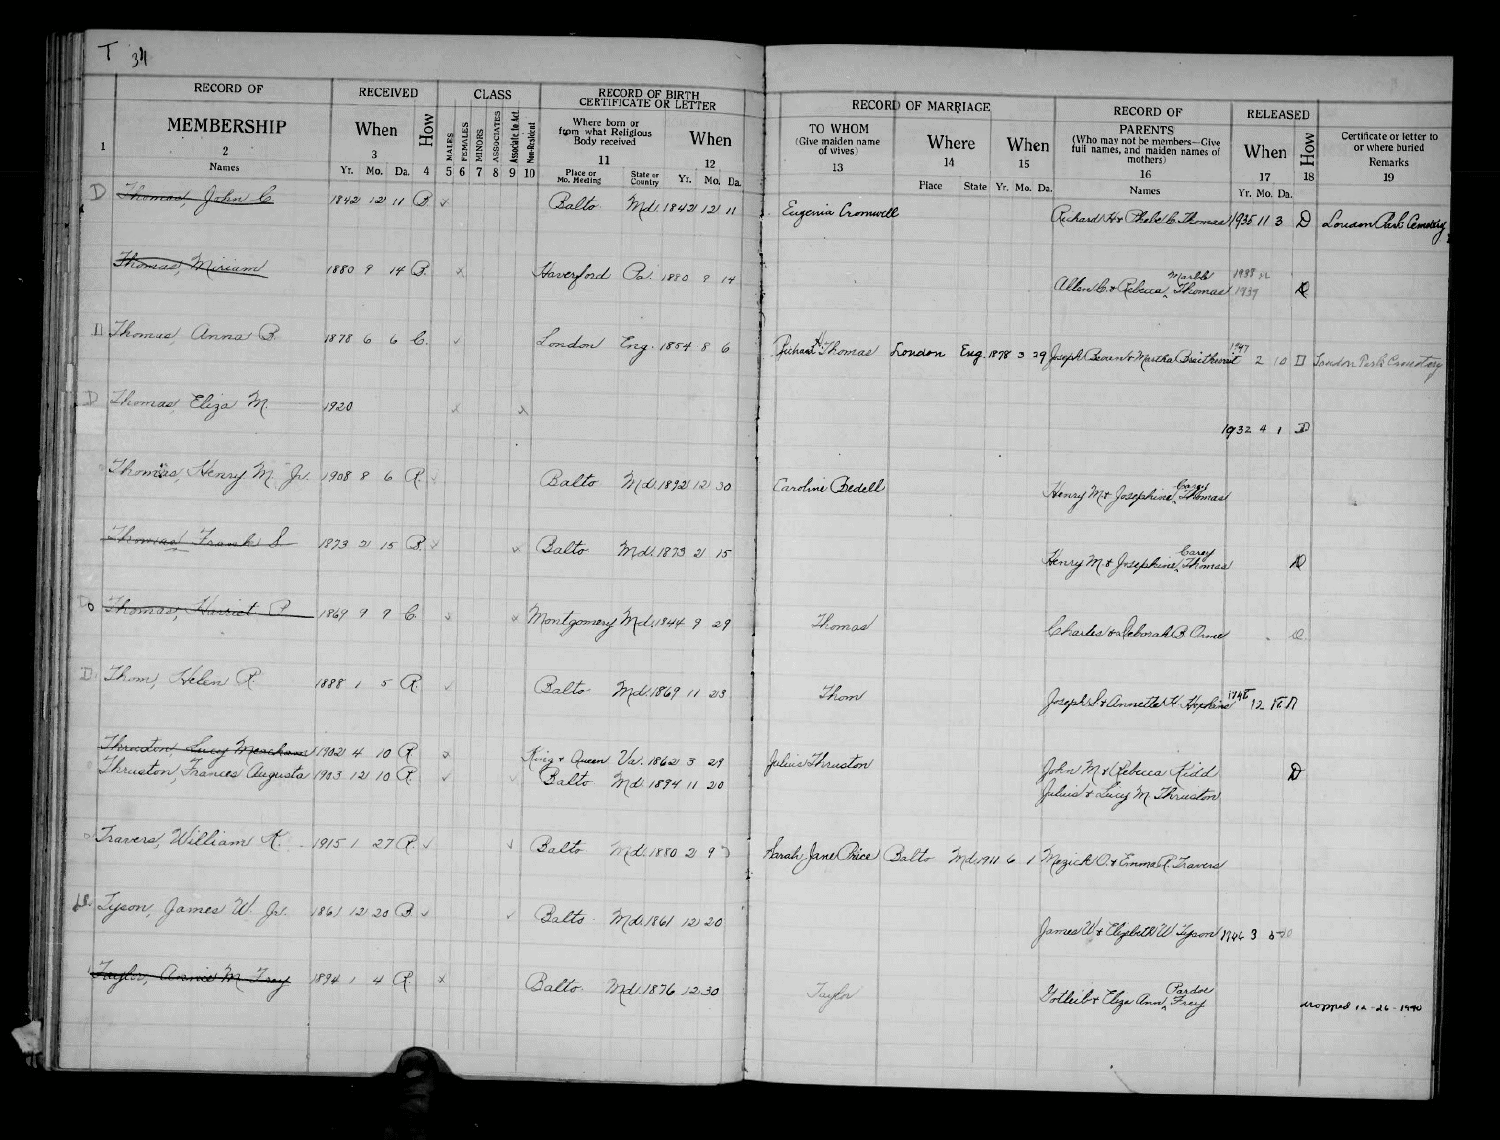 T 34
RECORD OF MEMBERSHIP
RECEIVED
CLASS
RECORD OF BIRTH
CERTIFICATE OR LETTER
RECORD OF MARRIAGE
RECORD OF PARENTS
RELEASED
1
2 Names
When 3 Yr. Mo. Da.
How 4
MALES 5
FEMALES 6
MINORS 7
ASSOCIATES 8
Associate In Act. 9
Non-Resident 10
Where born or from what Religious Body received
11
Place or Mo. Meeting
State or Country
When 12 Yr. Mo. Da.
TO WHOM (Give maiden name of wives)
13
Where 14 Place State
When 15 Yr. Mo. Da.
(Who may not be members—Give full names, and maiden names of mothers)
16 Names
When 17 Yr. Mo. Da.
How 18
Certificate or letter to or where buried
Remarks
19
D Thomas, John C. 1842 12 11 B Balto Md. 1842 12 11 Eugenia Cromwell Richard H & Phebe C Thomas 1935 11 3 D Loudon Park Cemetery
Thomas, Miriam 1880 9 14 B. Haverford Pa. 1880 9 14 Allen C. & Rebecca Marble Thomas 1938 1937
D Thomas, Anna B. 1878 6 6 C. London Eng. 1854 8 6 Richard H Thomas London Eng. 1878 3 29 Joseph Bevan & Martha Braithwait 1947 2 10 D Loudon Park Cemetery
D Thomas, Eliza M. 1920 1932 4 1 D
Thomas, Henry M. Jr. 1908 8 6 R. Balto Md. 1892 12 30 Caroline Bedell Henry M & Josephine Carey Thomas
Thomas Frank S 1873 2 15 B. Balto Md. 1873 2 15 Henry M. & Josephine Carey Thomas D
Thomas, Harriet P 1869 9 9 C. Montgomery Md. 1844 9 29 Thomas Charles & Deborah B Orme
D Thom, Helen R. 1888 1 5 R. Balto. Md. 1869 11 23 Thom Joseph S & Annette H Hopkins 1948 12
Thruston Lucy Meacham 1902 4 10 R King & Queen Va. 1862 3 29 Julius Thruston John M & Rebecca Kidd D
Thruston, Frances Augusta 1903 12 10 R. Balto Md. 1894 11 20 Julius & Lucy M Thruston
Travers, William K. 1915 1 27 R. Balto Md. 1880 2 9 Sarah Jane Price Balto Md. 1911 6 1 Mezick O. & Emma R. Travers
Tyson, James W. Jr. 1861 12 20 B. Balto. Md. 1861 12 20 James W & Elizabeth W Tyson 1946 3
Taylor, Annie M Frey 1894 1 4 R. Balto. Md. 1876 12 30 Taylor Gotleib & Eliza Ann Pardoe Frey dropped 12-26-1940